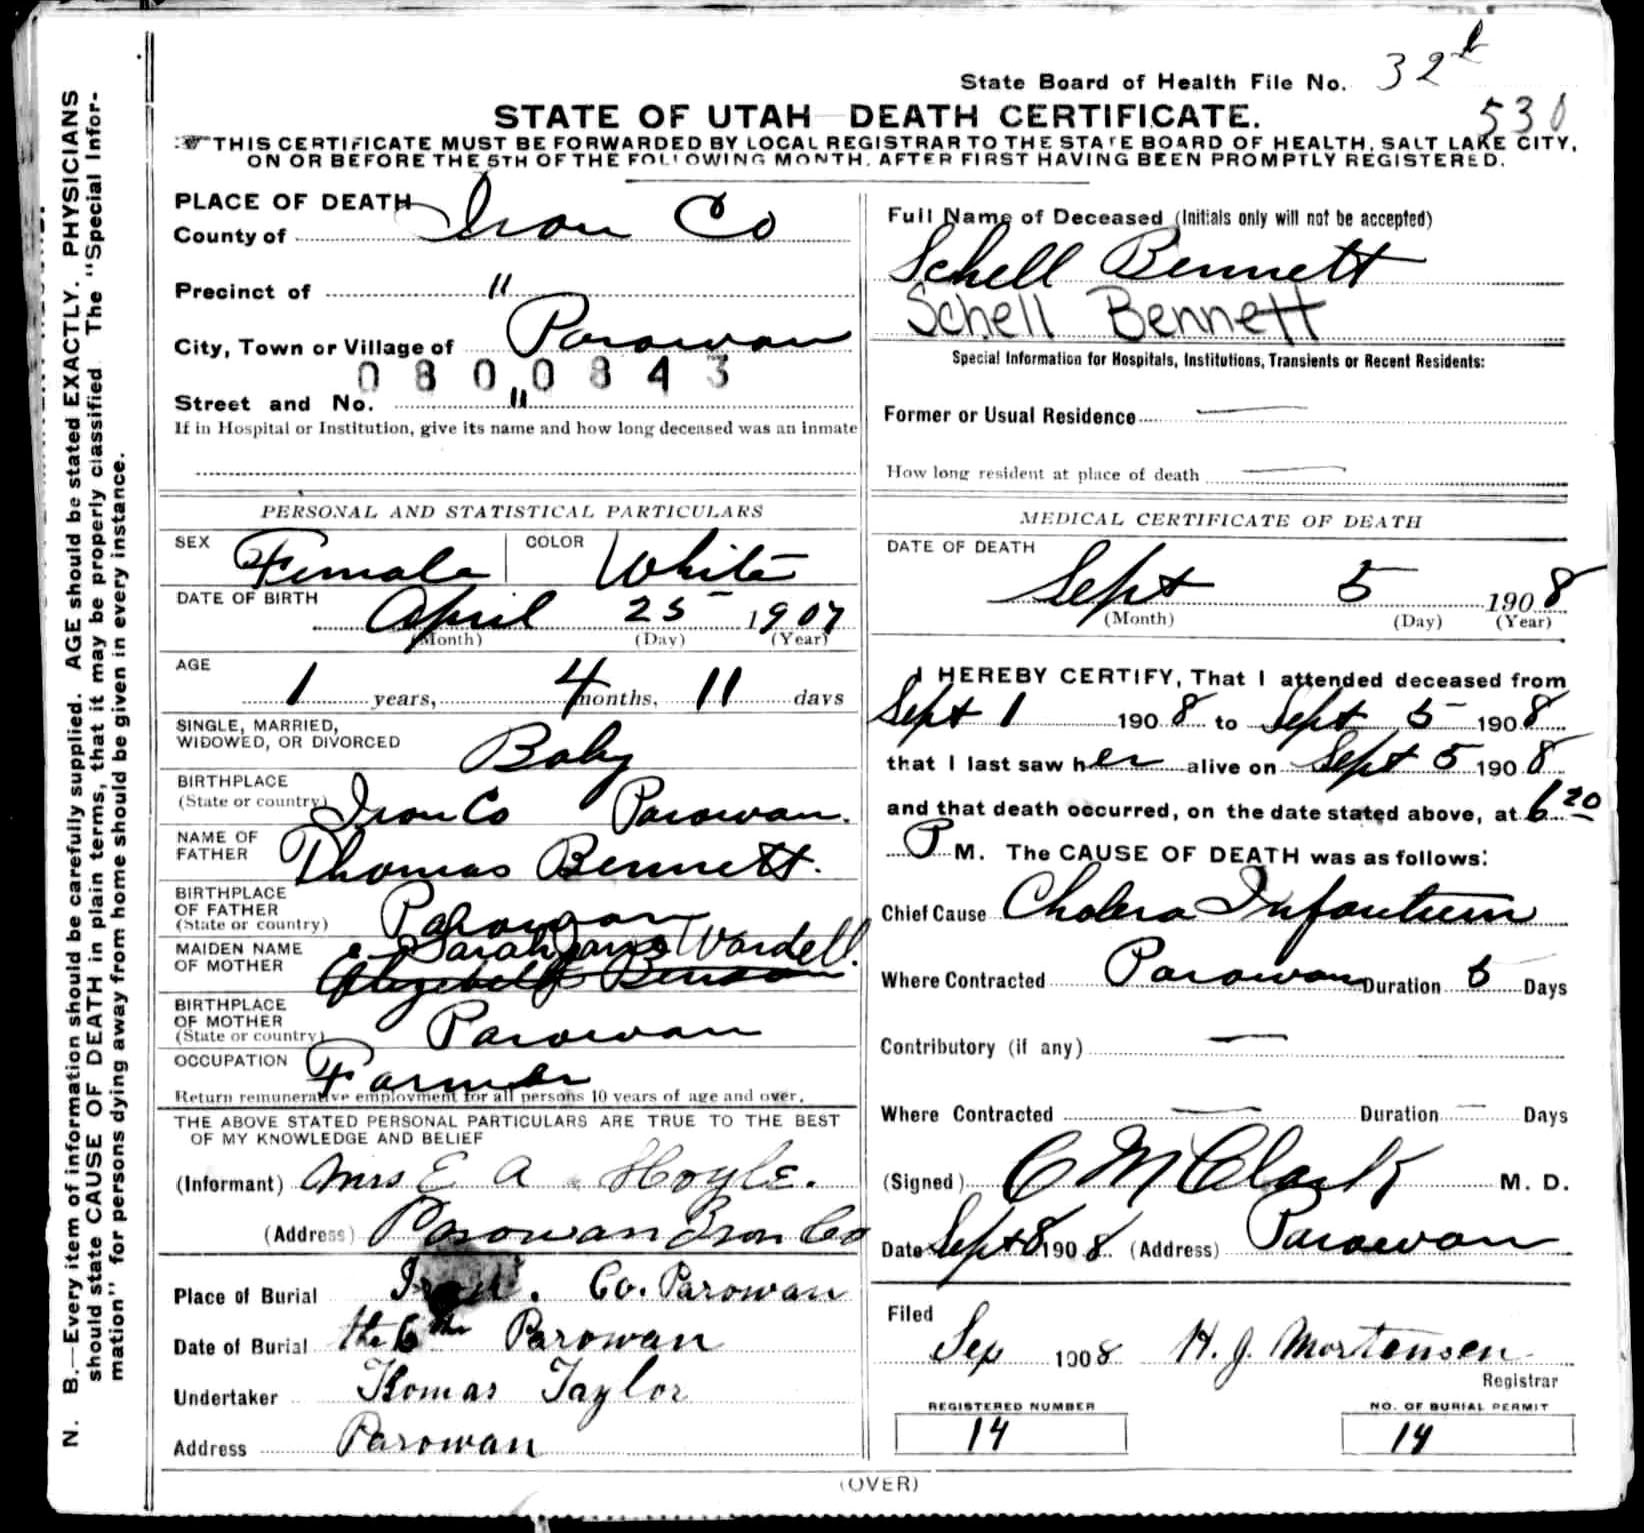 State Board of Health File No. 32
530
STATE OF UTAH—DEATH CERTIFICATE.
THIS CERTIFICATE MUST BE FORWARDED BY LOCAL REGISTRAR TO THE STATE BOARD OF HEALTH, SALT LAKE CITY,
ON OR BEFORE THE 5TH OF THE FOLLOWING MONTH, AFTER FIRST HAVING BEEN PROMPTLY REGISTERED.
PLACE OF DEATH
County of Iron Co
Precinct of "
City, Town or Village of Parowan
0800843
Street and No. "
If in Hospital or Institution, give its name and how long deceased was an inmate
PERSONAL AND STATISTICAL PARTICULARS
SEX Female COLOR White
DATE OF BIRTH April 25 1907
(Month) (Day) (Year)
AGE
1 years, 4 months, 11 days
SINGLE, MARRIED,
WIDOWED, OR DIVORCED Baby
BIRTHPLACE
(State or country) Iron Co Parowan.
NAME OF
FATHER Thomas Bennett.
BIRTHPLACE
OF FATHER
(State or country) Parowan
MAIDEN NAME Sarah Jane Wardell.
OF MOTHER
BIRTHPLACE
OF MOTHER
(State or country) Parowan
OCCUPATION Farmer
Return remunerative employment for all persons 10 years of age and over.
THE ABOVE STATED PERSONAL PARTICULARS ARE TRUE TO THE BEST
OF MY KNOWLEDGE AND BELIEF
(Informant) Mrs E A Hoyle.
(Address) Parowan Iron Co
Place of Burial Iron. Co. Parowan
Date of Burial the 6th Parowan
Undertaker Thomas Taylor
Address Parowan
Full Name of Deceased (Initials only will not be accepted)
Schell Bennett
Schell Bennett
Special Information for Hospitals, Institutions, Transients or Recent Residents:
Former or Usual Residence —
How long resident at place of death —
MEDICAL CERTIFICATE OF DEATH
DATE OF DEATH
Sept 5 1908
(Month) (Day) (Year)
I HEREBY CERTIFY, That I attended deceased from
Sept 1 1908 to Sept 5 1908
that I last saw her alive on Sept 5 1908
and that death occurred, on the date stated above, at 6 20
P M. The CAUSE OF DEATH was as follows:
Chief Cause Cholera Infantum
Where Contracted Parowan Duration 5 Days
Contributory (if any) —
Where Contracted — Duration — Days
(Signed) C M Clark M. D.
Date Sept 8 1908 (Address) Parowan
Filed
Sep 1908 H. J. Mortensen
Registrar
REGISTERED NUMBER
14
NO. OF BURIAL PERMIT
14
(OVER)
N. B.—Every item of information should be carefully supplied. AGE should be stated EXACTLY. PHYSICIANS
should state CAUSE OF DEATH in plain terms, that it may be properly classified The "Special Infor-
mation" for persons dying away from home should be given in every instance.